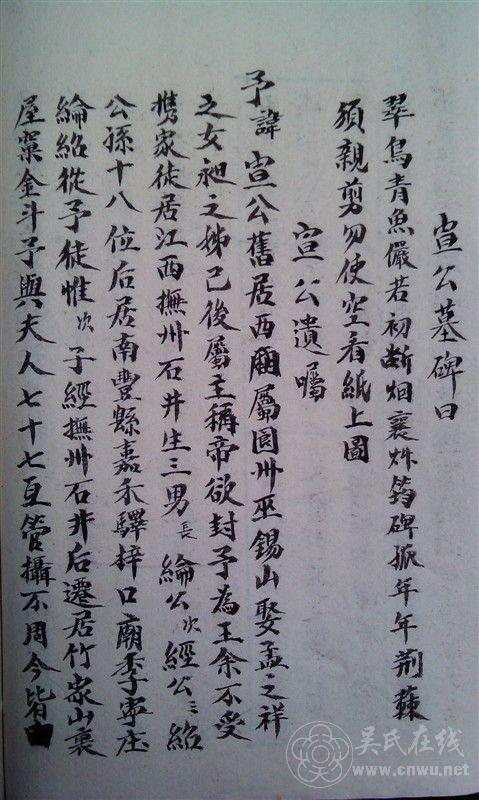 宣公墓碑曰
翠鳥青魚儼若初断烟襄炑筠碑掀年年荊棘
須親剪勿使空看紙上圖
宣公遺囑
予諱宣公舊居西屬圓州巫錫山娶孟之祥
之女昶之姊己後屬主稱帝欲封予為王余不受
携家徒居江西撫州石井生三男長綸公次經公三紹
公孫十八位后居南豐縣嘉禾驛梓口廟季寧庄
綸紹從予徒惟次子經撫州石井后遷居竹家山裏
屋架金斗予與夫人七十七亙管攝不周今皆由
吴氏在线
www.cnwu.net